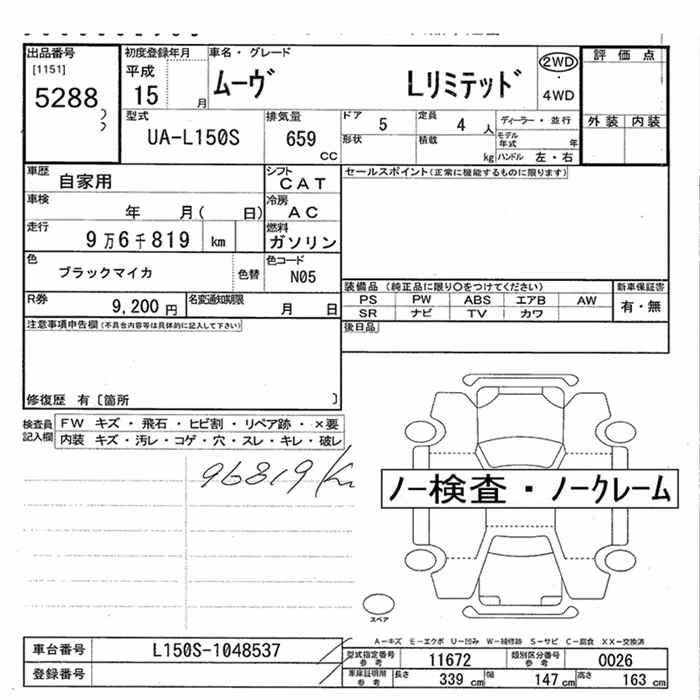 出品番号 初度登録年月 車名・グレード 評価点
[1151] 平成 ムーヴ Lリミテッド 2WD
5288 15 月 4WD
外装 内装
型式 排気量 ドア 5 定員 4 人 ディーラー・並行
UA-L150S 659 cc 形状 積載 kg モデル年式 年
ハンドル 左・右
車歴 自家用 シフト CAT セールスポイント(正常に機能するものに限ります)
車検 年 月( 日) 冷房 AC
走行 9万6千819 km 燃料 ガソリン
色 ブラックマイカ 色替 色コード N05
装備品(純正品に限り○をつけてください) 新車保証書
PS PW ABS エアB AW 有・無
SR ナビ TV カワ
R券 9,200円 名変通知期限 月 日
後日品
注意事項申告欄(不具合内容等は具体的に記入して下さい)
修復歴 有〔箇所 〕
検査員記入欄 FW キズ・飛石・ヒビ割・リペア跡・×要
内装 キズ・汚レ・コゲ・穴・スレ・キレ・破レ
96819Km
ノー検査・ノークレーム
スペア
A-キズ M-エクボ U-凹み W-補修跡 S-サビ C-腐食 XX-交換済
車台番号 L150S-1048537
型式指定番号 参考 11672 類別区分番号 参考 0026
登録番号
車庫証明用 参考 長さ 339 cm 幅 147 cm 高さ 163 cm